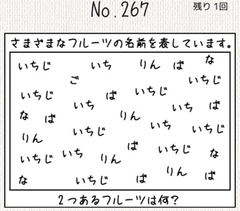 No.267
残り1回
さまざまなフルーツの名前を表しています。
いちじ いち りん ば な
ご いちじ ば
いちじ いち ば いち りん ば
な ば いち いちじ な
りん ば
いちじ いち りん ば な いちじ
な いちじ ば いち ば
2つあるフルーツは何？